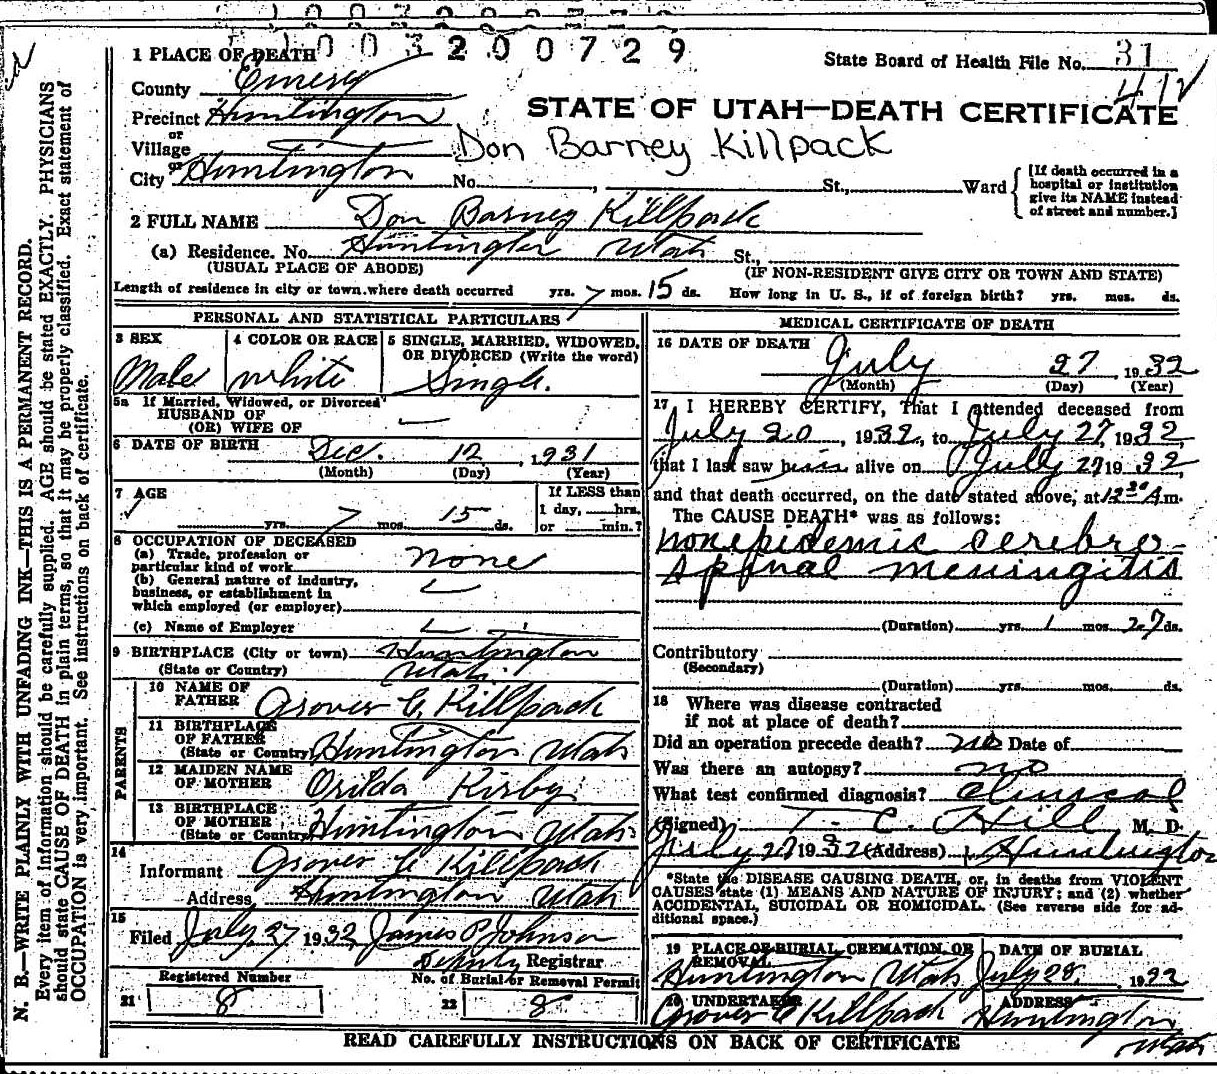 1003200729
1 PLACE OF DEATH
State Board of Health File No. 31
412
County Emery
Precinct Huntington
STATE OF UTAH—DEATH CERTIFICATE
or
Village
Don Barney Killpack
or
City Huntington No. , St., Ward
[If death occurred in a hospital or institution give its NAME instead of street and number.]
2 FULL NAME Don Barney Killpack
(a) Residence. No. Huntington Utah St.,
(USUAL PLACE OF ABODE) (IF NON-RESIDENT GIVE CITY OR TOWN AND STATE)
Length of residence in city or town where death occurred yrs. 7 mos. 15 ds. How long in U. S., if of foreign birth? yrs. mos. ds.
PERSONAL AND STATISTICAL PARTICULARS
3 SEX
Male
4 COLOR OR RACE
white
5 SINGLE, MARRIED, WIDOWED,
OR DIVORCED (Write the word)
Single.
5a If Married, Widowed, or Divorced
HUSBAND OF
(OR) WIFE OF
6 DATE OF BIRTH Dec. 12, 1931
(Month) (Day) (Year)
7 AGE
yrs. 7 mos. 15 ds.
If LESS than
1 day, hrs.
or min.?
8 OCCUPATION OF DECEASED
(a) Trade, profession or
particular kind of work none
(b) General nature of industry,
business, or establishment in
which employed (or employer)
(c) Name of Employer
9 BIRTHPLACE (City or town) Huntington
(State or Country) Utah
PARENTS
10 NAME OF
FATHER Grover C. Killpack
11 BIRTHPLACE
OF FATHER
(State or Country) Huntington Utah
12 MAIDEN NAME
OF MOTHER Orilda Kirby
13 BIRTHPLACE
OF MOTHER
(State or Country) Huntington Utah
14
Informant Grover C. Killpack
Address Huntington Utah
15
Filed July 27 1932 James P Johnson
Deputy Registrar
Registered Number
21 8
No. of Burial or Removal Permit
22 8
MEDICAL CERTIFICATE OF DEATH
16 DATE OF DEATH July 27, 1932
(Month) (Day) (Year)
17 I HEREBY CERTIFY, That I attended deceased from
July 20, 1932, to July 27, 1932,
that I last saw him alive on July 27 1932
and that death occurred, on the date stated above, at 12 30 A m.
The CAUSE DEATH* was as follows:
nonepidemic cerebro-
spinal meningitis
(Duration) yrs. 1 mos. 27 ds.
Contributory
(Secondary)
(Duration) yrs. mos. ds.
18 Where was disease contracted
if not at place of death?
Did an operation precede death? no Date of
Was there an autopsy? no
What test confirmed diagnosis? clinical
(Signed) T. C. Hill M. D.
July 27 1932 (Address) Huntington
*State the DISEASE CAUSING DEATH, or, in deaths from VIOLENT
CAUSES state (1) MEANS AND NATURE OF INJURY; and (2) whether
ACCIDENTAL, SUICIDAL OR HOMICIDAL. (See reverse side for ad-
ditional space.)
19 PLACE OF BURIAL, CREMATION, OR
REMOVAL
Huntington Utah
DATE OF BURIAL
July 28, 1932
20 UNDERTAKER
Grover C Killpack
ADDRESS
Huntington
Utah
READ CAREFULLY INSTRUCTIONS ON BACK OF CERTIFICATE
N. B.—WRITE PLAINLY WITH UNFADING INK—THIS IS A PERMANENT RECORD.
Every item of information should be carefully supplied. AGE should be stated EXACTLY. PHYSICIANS
should state CAUSE OF DEATH in plain terms, so that it may be properly classified. Exact statement of
OCCUPATION is very important. See instructions on back of certificate.